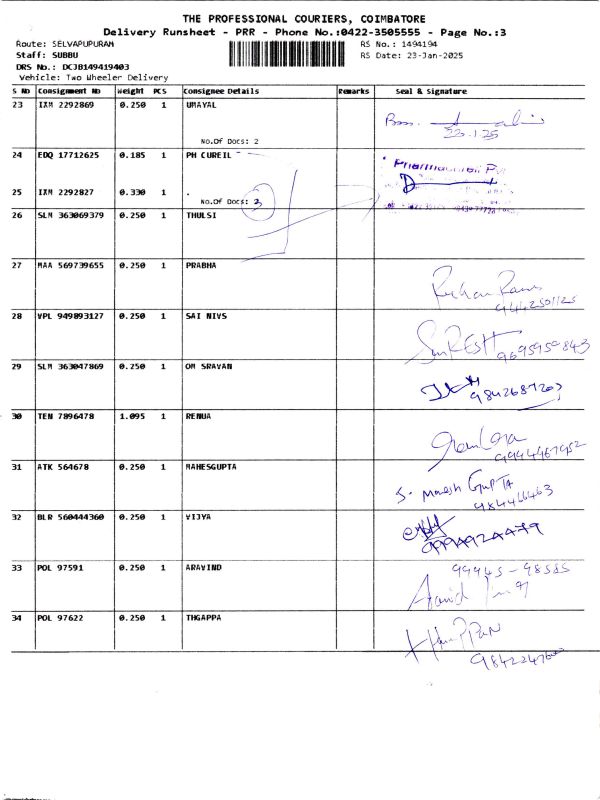 THE PROFESSIONAL COURIERS, COIMBATORE
Delivery Runsheet - PRR - Phone No.:0422-3505555 - Page No.:3
Route: SELVAPUPURAM RS No.: 1494194
Staff: SUBBU RS Date: 23-Jan-2025
DRS No.: DCJB149419403
Vehicle: Two Wheeler Delivery
S No Consignment No Weight PCS Consignee Details Remarks Seal & Signature
23 IXM 2292869 0.250 1 UMAYAL
23.1.25
No.Of Docs: 2
24 EDQ 17712625 0.185 1 PH CUREIL
25 IXM 2292827 0.330 1 .
No.Of Docs: 2
26 SLM 363069379 0.250 1 THULSI
27 MAA 569739655 0.250 1 PRABHA
28 VPL 949893127 0.250 1 SAI NIVS
SURESH
9695959843
29 SLM 363047869 0.250 1 OM SRAVAN
30 TEN 7896478 1.095 1 RENUA
9994467952
31 ATK 564678 0.250 1 MAHESGUPTA
S. Mahesh GUPTA
984466463
32 BLR 560444360 0.250 1 VIJYA
33 POL 97591 0.250 1 ARAVIND 99945-98585
34 POL 97622 0.250 1 THGAPPA